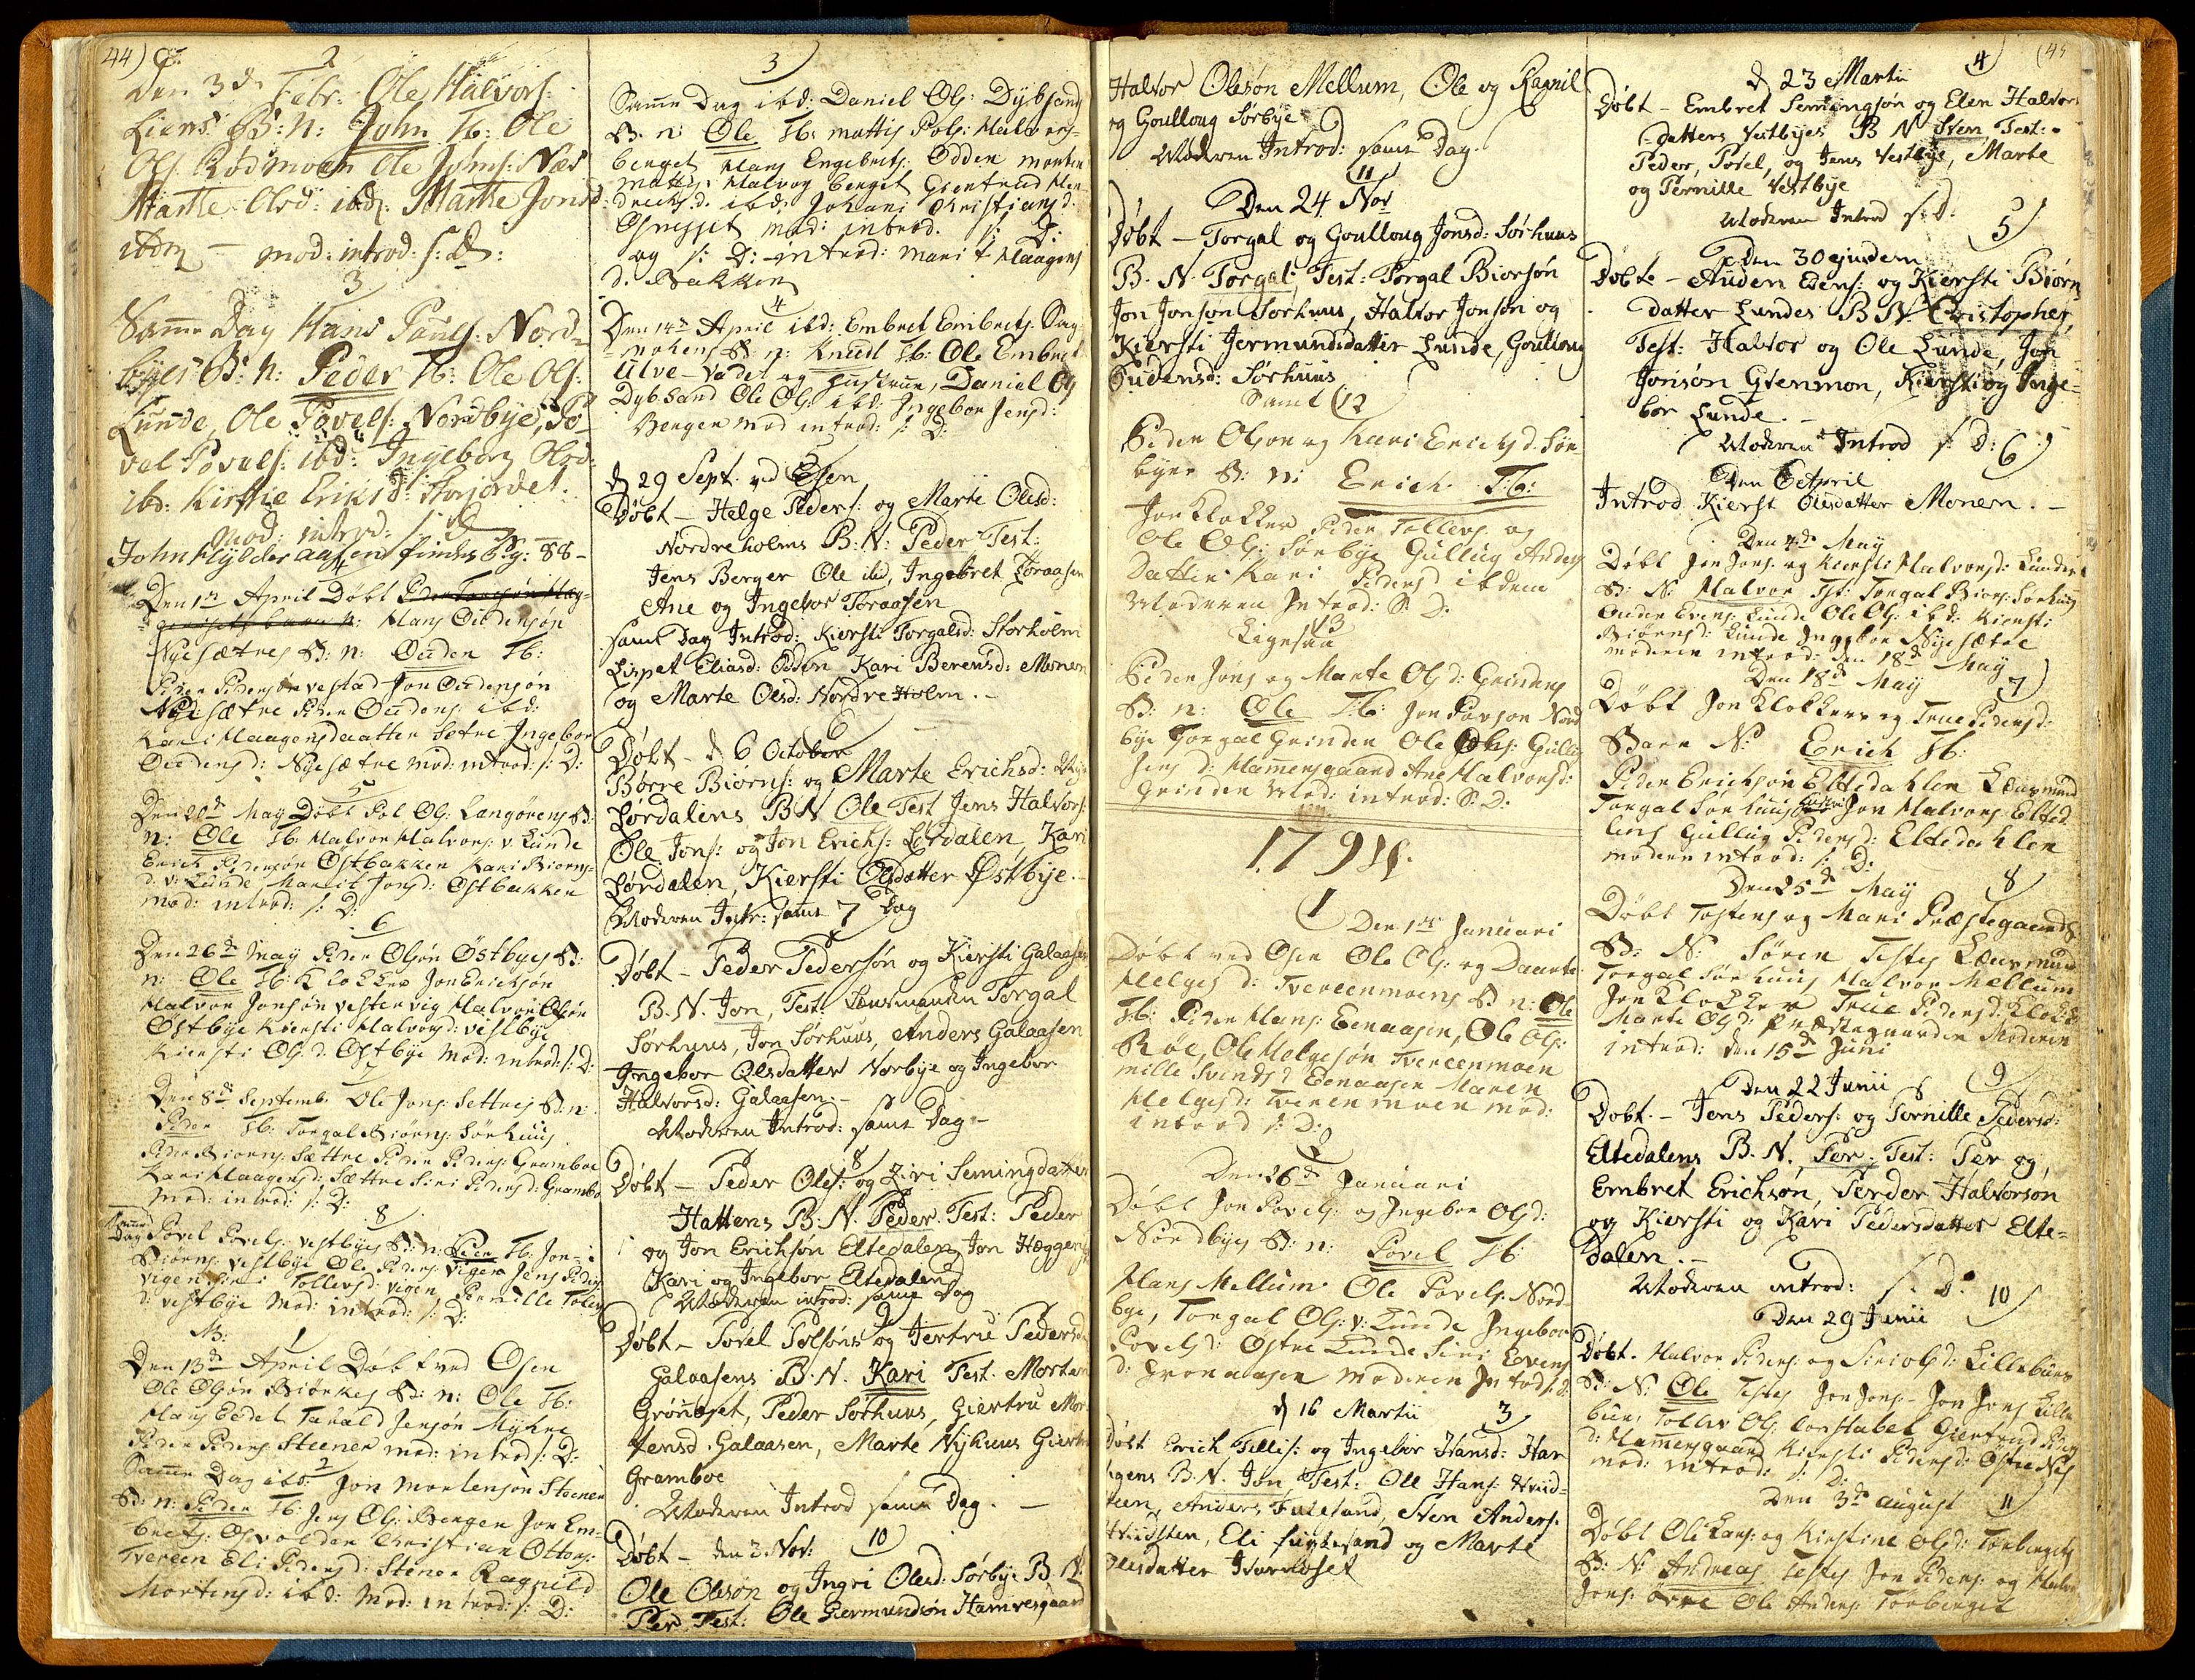 44)
2
Den 3die Febr: Ole Halvors:
Liens B: n: John Tb: Ole
Ols: Rødmoen Ole Johns: Næs
Marthe Olsd: ibd: Marthe Jonsd:
ibdm - mod: introd: s: D:
3
Samme Dag Hans Pouls: Nord-
byes B: n: Peder Tb: Ole Ols:
Lunde, Ole Povels: Nordbye, Po-
vel Povels: ibd: Ingeborg Olsd:
ibd: Kirstie Eriksd: Storjordet.
mod: introd: s: D:
John Hylderaasen findes Pg: 88-
Den 1ste April Døbt
Hans Oudensøn
Nysætres B: n: Ouden Tb:
Peder Pedersøn vestad Jon Oudensøn
Nysætre Peder Oudens: ibd:
Kari Haagensdaatter Setre Ingebor
Oudensd: Nysætre mod: introd: s: D:
5
Den 20de May Døbt Pol Ols: Langørens B:
n: Ole Tb: Halvor Halvors: v. Lunde
Erich Pedersøn Østbakken Kari Biørns-
d: v: Lunde, Marit Jonsd: Østbakken
mod: introd: s: D:
6
Den 26de May Peder Olsøn Østbyes B:
n: Ole Tb: Klokker Jon Erichsøn
Halvor Jonsøn vestervig Halvor Olsøn
Østbye Kiersti Halvorsd: vestbye
Kiersti Ols: d: Østbye mod: introd: s: D:
7
Den 8de Septemb: Ole Jons: Settres B: n:
Peder Tb: Torgal Biørns: Sørhuus
Peder Biørns: Sættre Peder Peders: Gramboe
Kari Haagensd: Sættre Siri Pedersd: Grambo
Mod: introd: s: D:
8
Samme Dag Povel Povels: vestbyes B: n: Peder Tb: Jon
Biørns: vestbye Ole Peders: vigen Jens Peders:
vigen Siri Tollevsd: vigen Pernille Tolevs
d: vestbye Mod: introd: s: D:
NB:
1
Den 13de April Døbt ved Osen
Ole Olsøn Biørkes B: n: Ole Tb:
Hans Eedet Tarald Jensøn Myhre
Peder Peders: Steenen mod: introd: s: D:
2
Samme Dag ibd: Jon Mortensøn Steenen
B: n: Peder Tb: Jens Ols: Bergen Jon Em-
brets: Osvolden Christian Ottos:
Tvereen Eli Pedersd: Stenen Ragnild
Mortensd: ibd: Mod: introd: s: D:
3
Samme Dag ibd: Daniel Ols: Dybsand
B. n: Ole Tb: Mattis Pols:
berget Hans Engebrets: Odden Morten
Mattis: Halvog berget Giertrud Hen-
drichsd: ibd: Johani Christiansd:
Osneset mod: introd. s: D:
og s: D: introd: Marit Haagens
d. Bakken
4
Den 14de April ibd: Embret Embrets: Sag-
mohens B n: Knud Tb: Ole Embrets
Ulve-vadet og Hustrue, Daniel Ols
Dybsand Ole Ols: ibd: Ingebor Jensd:
Bergen mod introd: s: D:
5
d. 29 Sept. ved Osen
Døbt - Helge Peders: og Marte Olesd:
Nordreholms B: N: Peder Test:
Jens Berger Ole ibid, Ingebret Toraasen
Ane og Ingebor Toraasen
samt Dag Introd: Kiersti Torgalsd: Storholm
Lispet Eliasd: Odden Kari Berensd: Monen
og Marte Olesd: Nordre Holm. -
6
Døbt - d 6 October
Børre Biørns: og Marte Erichsd:
Lørdalens B N Ole Test Jens Halvors:
Ole Jons: og Jon Erichs: Lørdalen, Kari
Lørdalen, Kiersti Olsdatter Østbye. -
Moderen Intr: samt Dag
7
Døbt - Peder Pedersøn og Kiersti Galaasen
B. N. Jon, Test: Lensmanden Torgal
Sørhuus, Jon Sørhuus, Anders Galaasen
Ingebor Olesdatter Norbye og Ingebor
Halvorsd: Galaasen. -
Moderen Introd: samt Dag -
8
Døbt - Peder Oles: og Ziri Semingdatter
Hattens B. N. Peder. Test: Peder
og Jon Erichsøn Eltedalen Jon Hæggen
Kari og Ingebor Eltedalen
Moderen introd: samt Dag
9
Døbt - Povel Polsøns og Jertrue Pedersd
Galaasens B. N. Kari Test. Morten
Grønoset, Peder Sørhuus, Giertru Mor-
tensd. Galaasen, Marte Nyhuus Giertru
Gramboe
Moderen Introd samt Dag. -
10
Døbt - den 3. Nov:
Ole Olesøn og Ingri Olesd: Sørbye B N.
Per. Test: Ole Giermundsøn Hamresgaard
Halvor Olesøn Mellum, Ole og Ragnil
og Goulloug Sørbye
Moderen Introd: samt Dag.
11
Den 24. Nov
Døbt - Torgal og Goulloug Jonsd: Sørhuus
B. N. Torgal; Test: Torgal Biørsøn
Jon Jonson Sørhuus, Halvor Jonsøn og
Kiersti Jermundsdatter Lunde, Goulloug
Oudensd: Sørhuus
Samt 12
Peder Olsøn og Kari Erichsd: Sør-
byes B: n: Erich Tb:
Jon Klokker Peder Tollevs: og
Ole Ols: Sørbye Gullug Anders
Datter Kari Pedersd ibdem
Moderen Introd: S: D:
13
Ligesaa
Peder Jons og Marte Ols d: Grindens
B: n: Ole Tb: Jon Povson Nord
bye Torgal Grinden Ole Ols: Gullu
Jens d: Hamersgaard Ane Halvorsd:
Grinden Mod: introd: S: D:
1794.
1 Den 1ste Januari
Døbt ved Osen Ole Ols: og Daarte
Helges d: Tvereenmoens B n: Ole
Tb: Peder Hans: Eenaasen, Ole Ols:
Røe, Ole Helgesøn Tvereenmoen
mille Svends d Eenaasen Maren
Helgesd: Tvereenmoen mod:
introd s: D:
2
Den 26de Januari
Døbt Jon Povels: og Ingebor Ols d:
Nordbyes B: n: Povel Tb:
Hans Mellum Ole Povels: Nord-
bye, Torgal Ols: v: Lunde Ingebor
Povelsd: Østre Lunde Siri Evens
d: Moderen Introd s: D:
d 16 Martii 3
Døbt Erich Tillis: og Ingebor Hansd: Har
igens B. N. Jon, Test: Ole Hans: Hvid-
steen, Anders Fulesand, Sven Anders:
Hvidsten, Eli Fuglesand og Marte
Olesdatter Tvernæset
4 (45
d 23 Martii
Døbt - Embret Semingsøn og Elen Halvors
datters Vestbyes B N Sven Test:
Peder, Povel, og Jens Vestbye, Marte
og Pernille Vestbye
Moderen Introd s: D:
5
Den 30 ejusdem
Døbte - Auden Edens: og Kiersti Biørns
datter Lundes B N. Cristopher,
Test: Halvor og Ole Lunde, Jon
Jonsøn Grenmon, Kiersti og Inge-
bor Lunde. -
Moderen Introd s: D: 6
Den 6 April
Introd Kierst Olesdatter Monen. -
Den 4de May
Døbt Jon Jons: og Kiersti Halvorsd: Lundes
B: N: Halvor Tst: Torgal Biørs: Sørhuus
Ouden Evens: Lunde Ole Ols: ibd: Kiersti
Biørnsd: Lunde Ingebor Nysætre
moderen introd: den 18de May
Den 18de May 7
Døbt Jon Klokkers og True Pedersd:
Barn N: Erich Tb:
Peder Erichsøn Eltedahlen Lensmand
Torgal Sørhuus Jon Halvors: Elted
lens Gullug Pedersd: Eltedahlen
moderen introd: s: D:
Den 25de May 8
Døbt Tostens og Mari Præstegaards
B: N: Søren Testes Lensmand
Torgal Sørhuus Halvor Mellum
Jon Klokker True Pedersd: Klokk
Marte Ols d: Præstegaarden Moderen
introd: den 15de Juni
Den 22 Junii 9
Døbt - Jens Peders: og Pernille Pedersd:
Eltedalens B. N. Per. Test: Per og,
Embret Erichsøn, Perder Halvorson
og Kiersti og Kari Pedersdatter Elte-
dalen. -
Moderen introd: s. D: 10
Den 29 Junii
Døbt. Halvor Peders: og Siri Ols d: Lilleburs
B: N: Ole Testes Jon Jons - Jon Jons Lille
buer Tollev Ols: Corstabel Giertrud Peders
d: Hamersgaard Kiersti Pedersd: Østre Næs
mod: introd: s: D:
Den 3de August 11
Døbt Ole Lars: og Kirstine Ols d: Torbergets
B: N: Andreas Testes Jon Peders: og Halvor
Jons: Ørre Ole Anders: Torberget